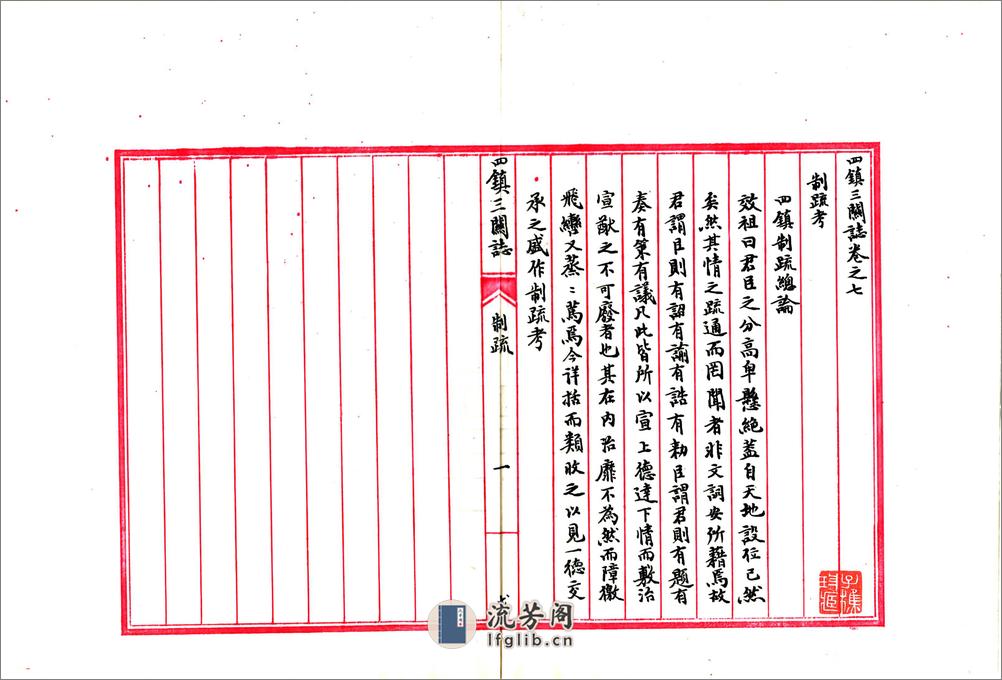 四鎮三關誌卷之七
制疏考
四鎮制疏總論
效祖曰君臣之分高卑懸絶蓋自天地設位已然
矣然其情之疏通而罔聞者非文詞安所藉焉故
君謂臣則有詔有諭有誥有勅臣謂君則有題有
奏有策有議凡此皆所以宣上德達下情而敷治
宣猷之不可廢者也其在內治靡不為然而障徼
飛又蒸〻焉今詳括而類收之以見一德交
承之盛作制疏考
四鎮三關誌
制疏
一
流芳阁
lfglib.cn